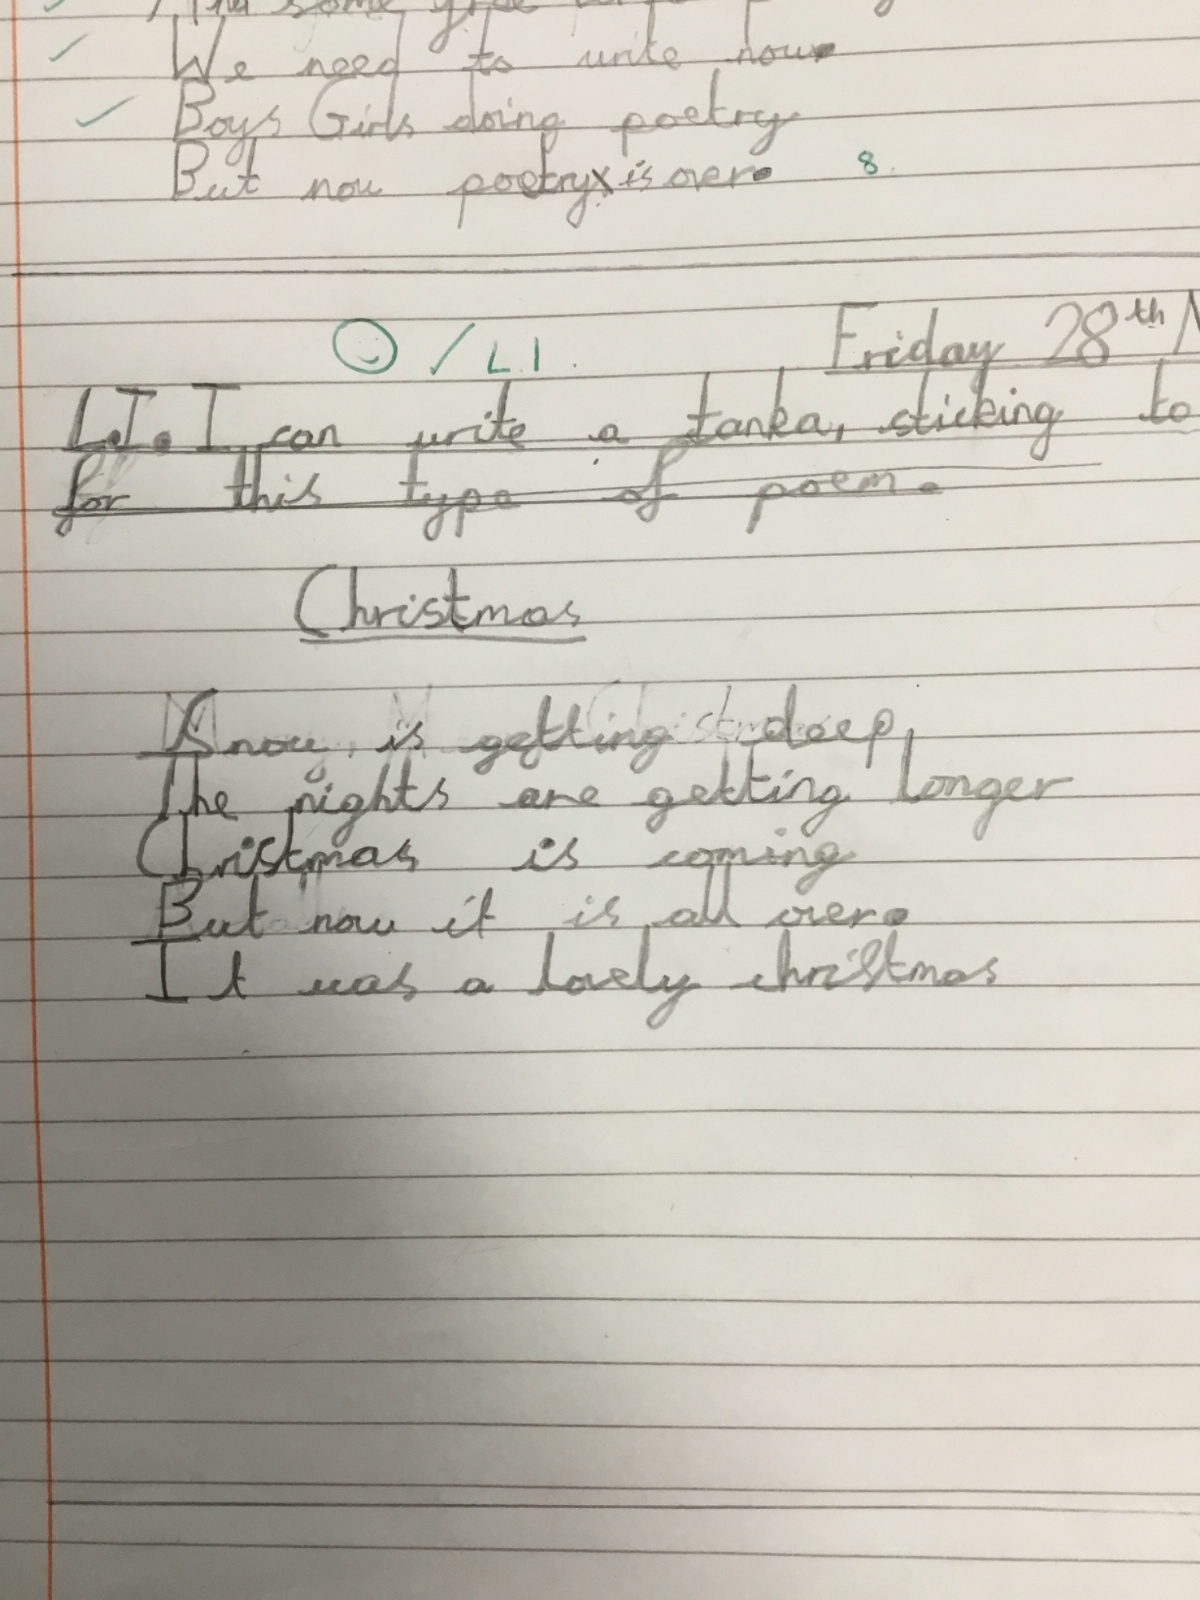 We need to write now.
Boys Girls doing poetry
But now poetry is over. 8.
Friday 28th N
/ L I .
L.I. I can write a tanka, sticking to
for this type of poem.
Christmas
Snow, is getting deep,
The nights are getting longer
Christmas is coming
But now it is all over.
It was a lovely christmas